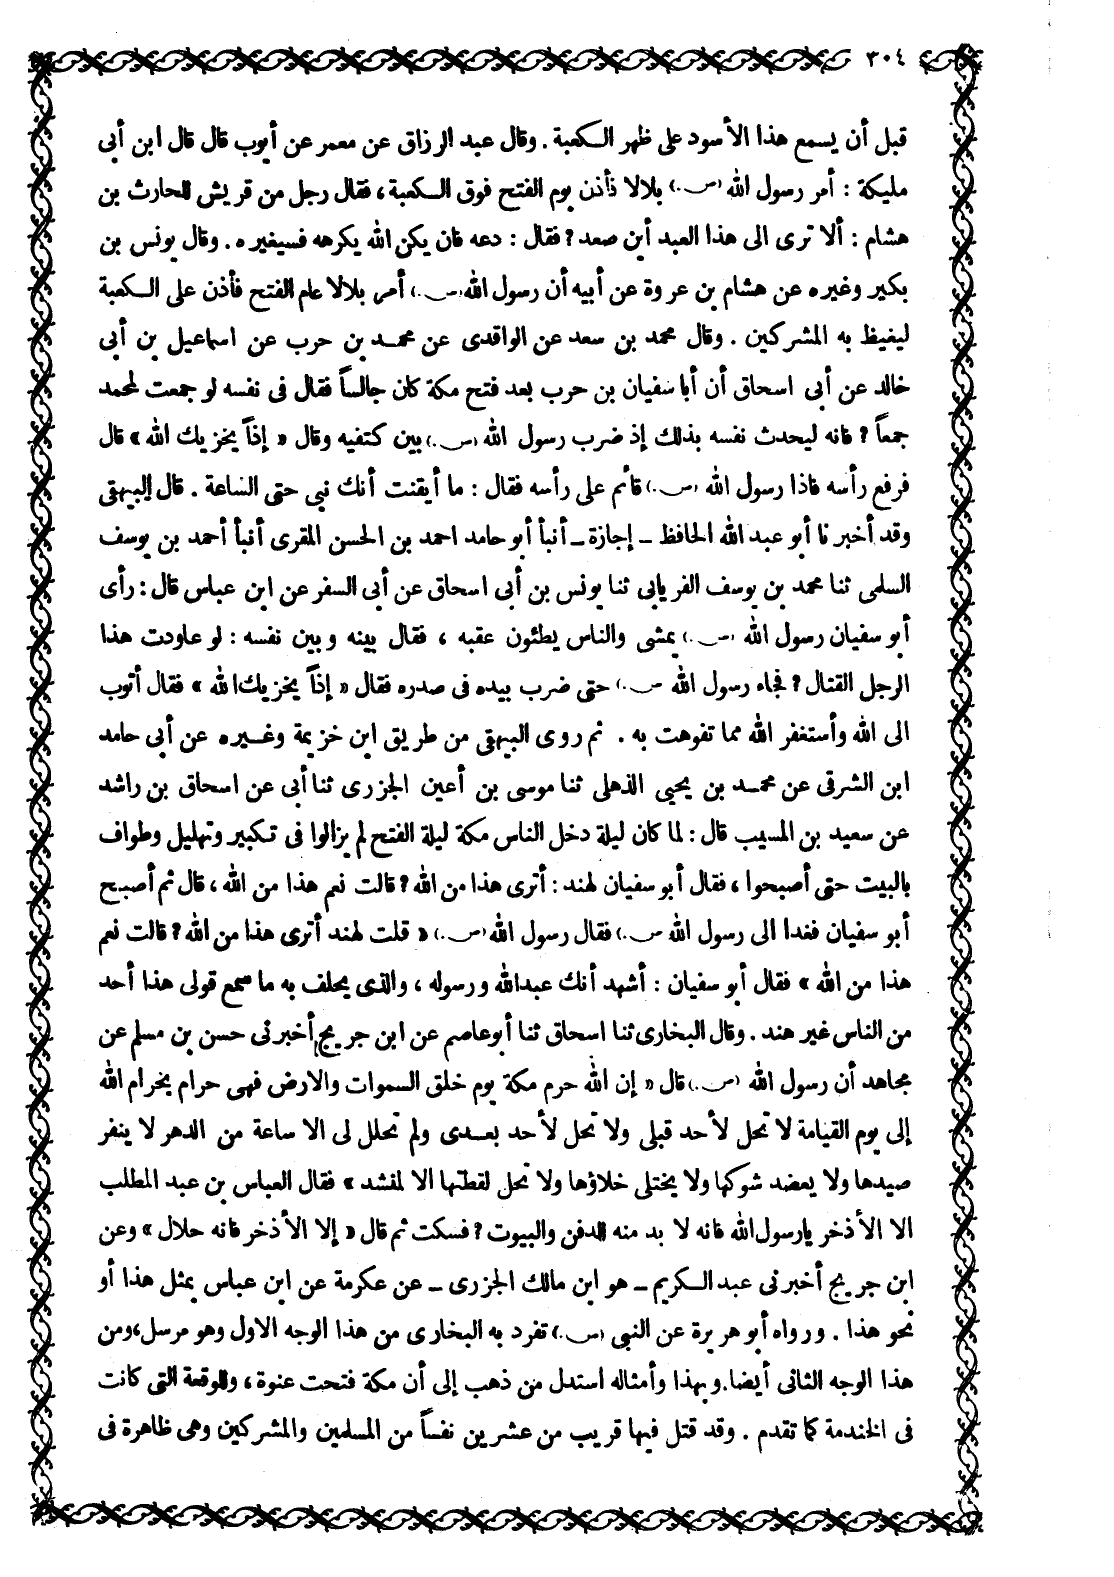 ٣٠٤
قبل أن يسمع هذا الأسود على ظهر الكعبة . وقال عبد الرزاق عن معمر عن أيوب قال قال ابن أبى
مليكة : أمر رسول الله (ص.) بلالا فأذن يوم الفتح فوق الكعبة ، فقال رجل من قريش للحارث بن
هشام : ألا ترى الى هذا العبد أين صعد ؟ فقال : دعه فان يكن الله يكرهه فسيغيره . وقال يونس بن
بكير وغيره عن هشام بن عروة عن أبيه أن رسول الله (ص.) أمر بلالا عام الفتح فأذن على الكعبة
ليغيظ به المشركين . وقال محمد بن سعد عن الواقدى عن محمد بن حرب عن اسماعيل بن أبى
خالد عن أبى اسحاق أن أبا سفيان بن حرب بعد فتح مكة كان جالساً فقال فى نفسه لو جمعت لمحمد
جمعاً ؟ فانه ليحدث نفسه بذلك إذ ضرب رسول الله (ص.) بين كتفيه وقال « إذاً يخزيك الله » قال
فرفع رأسه فاذا رسول الله (ص.) قائم على رأسه فقال : ما أيقنت أنك نبى حتى الساعة . قال البيهقى
وقد أخبرنا أبو عبد الله الحافظ ـ إجازة ـ أنبأ أبو حامد احمد بن الحسن المقرى أنبأ أحمد بن يوسف
السلمى ثنا محمد بن يوسف الفريابى ثنا يونس بن أبى اسحاق عن أبى السفر عن ابن عباس قال : رأى
أبو سفيان رسول الله (ص.) يمشى والناس يطئون عقبه ، فقال بينه وبين نفسه : لو عاودت هذا
الرجل القتال ؟ فجاء رسول الله ص.) حتى ضرب بيده فى صدره فقال « إذاً يخزيك الله » فقال أتوب
الى الله وأستغفر الله مما تفوهت به . ثم روى البيهقى من طريق ابن خزيمة وغيره عن أبى حامد
ابن الشرقى عن محمد بن يحيى الذهلى ثنا موسى بن أعين الجزرى ثنا أبى عن اسحاق بن راشد
عن سعيد بن المسيب قال : لما كان ليلة دخل الناس مكة ليلة الفتح لم يزالوا فى تكبير وتهليل وطواف
بالبيت حتى أصبحوا ، فقال أبو سفيان لهند : أترى هذا من الله ؟ قالت نعم هذا من الله ، قال ثم أصبح
أبو سفيان فغدا الى رسول الله ص.) فقال رسول الله (ص.) « قلت لهند أترى هذا من الله ؟ قالت نعم
هذا من الله » فقال أبو سفيان : أشهد أنك عبدالله ورسوله ، والذى يحلف به ما سمع قولى هذا أحد
من الناس غير هند . وقال البخارى ثنا اسحاق ثنا أبو عاصم عن ابن جريج أخبرنى حسن بن مسلم عن
مجاهد أن رسول الله (ص.) قال « إن الله حرم مكة يوم خلق السموات والارض فهى حرام بحرام الله
إلى يوم القيامة لا تحل لأحد قبلى ولا تحل لأحد بعدى ولم تحلل لى الا ساعة من الدهر لا ينفر
صيدها ولا يعضد شوكها ولا يختلى خلاؤها ولا تحل لقطتها الا لمنشد » فقال العباس بن عبد المطلب
الا الأذخر يارسول الله فانه لا بد منه للدفن والبيوت ؟ فسكت ثم قال « إلا الأذخر فانه حلال » وعن
ابن جريج أخبرنى عبد الكريم ـ هو ابن مالك الجزرى ـ عن عكرمة عن ابن عباس بمثل هذا أو
نحو هذا . ورواه أبو هريرة عن النبى (ص.) تفرد به البخارى من هذا الوجه الاول وهو مرسل ، ومن
هذا الوجه الثانى أيضا . وبهذا وأمثاله استدل من ذهب إلى أن مكة فتحت عنوة ، وللوقعة التى كانت
فى الخندمة كما تقدم . وقد قتل فيها قريب من عشرين نفساً من المسلمين والمشركين وهى ظاهرة فى